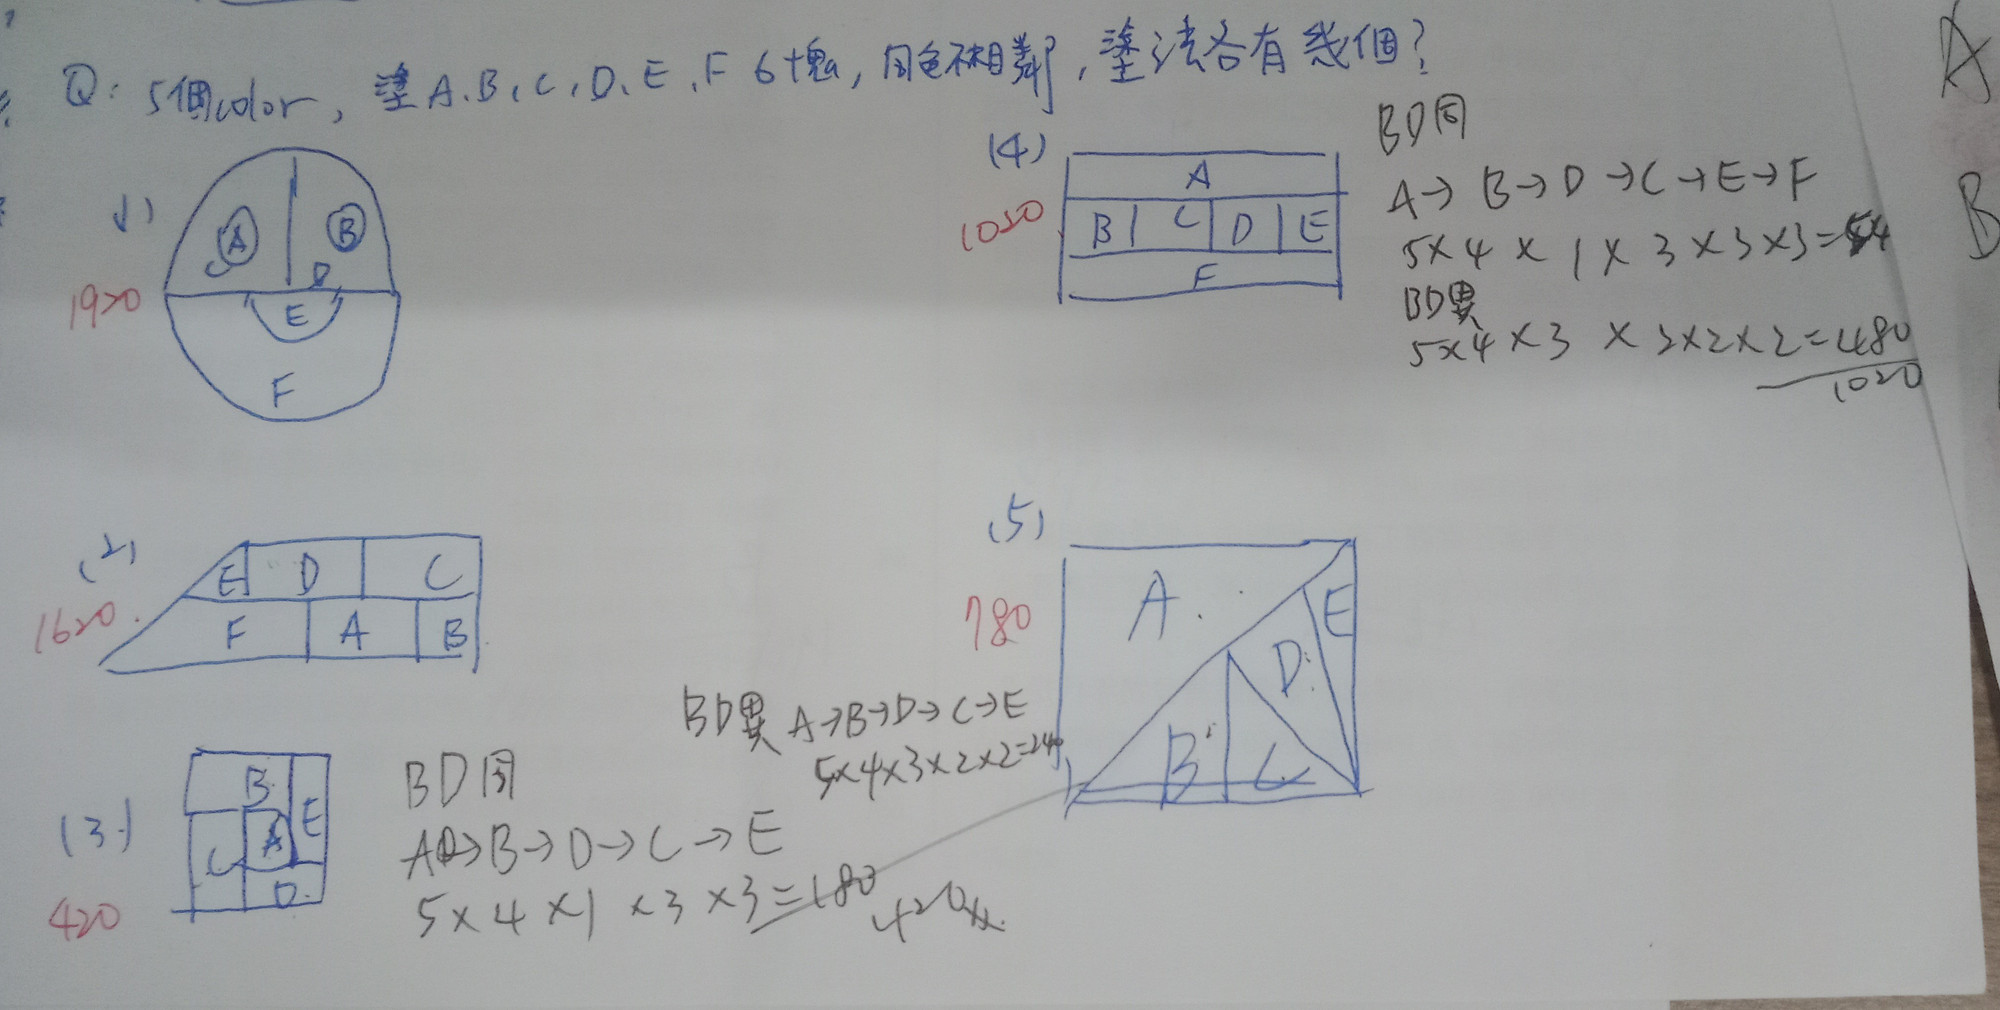 Q: 5個color, 塗A、B、C、D、E、F 6塊, 同色不相鄰, 塗法各有幾個?
(1)
A
B
C
D
E
F
1920
(2)
E D C
F A B
1620
(3)
B
E
A
C
D
420
BD同
A→B→D→C→E
5×4×1×3×3=180
420
BD異 A→B→D→C→E
5×4×3×2×2=240
(4)
A
B C D E
F
1020
BD同
A→B→D→C→E→F
5×4×1×3×3×3=
BD異
5×4×3×2×2×2=480
1020
(5)
A
E
D
B
C
780
A
B